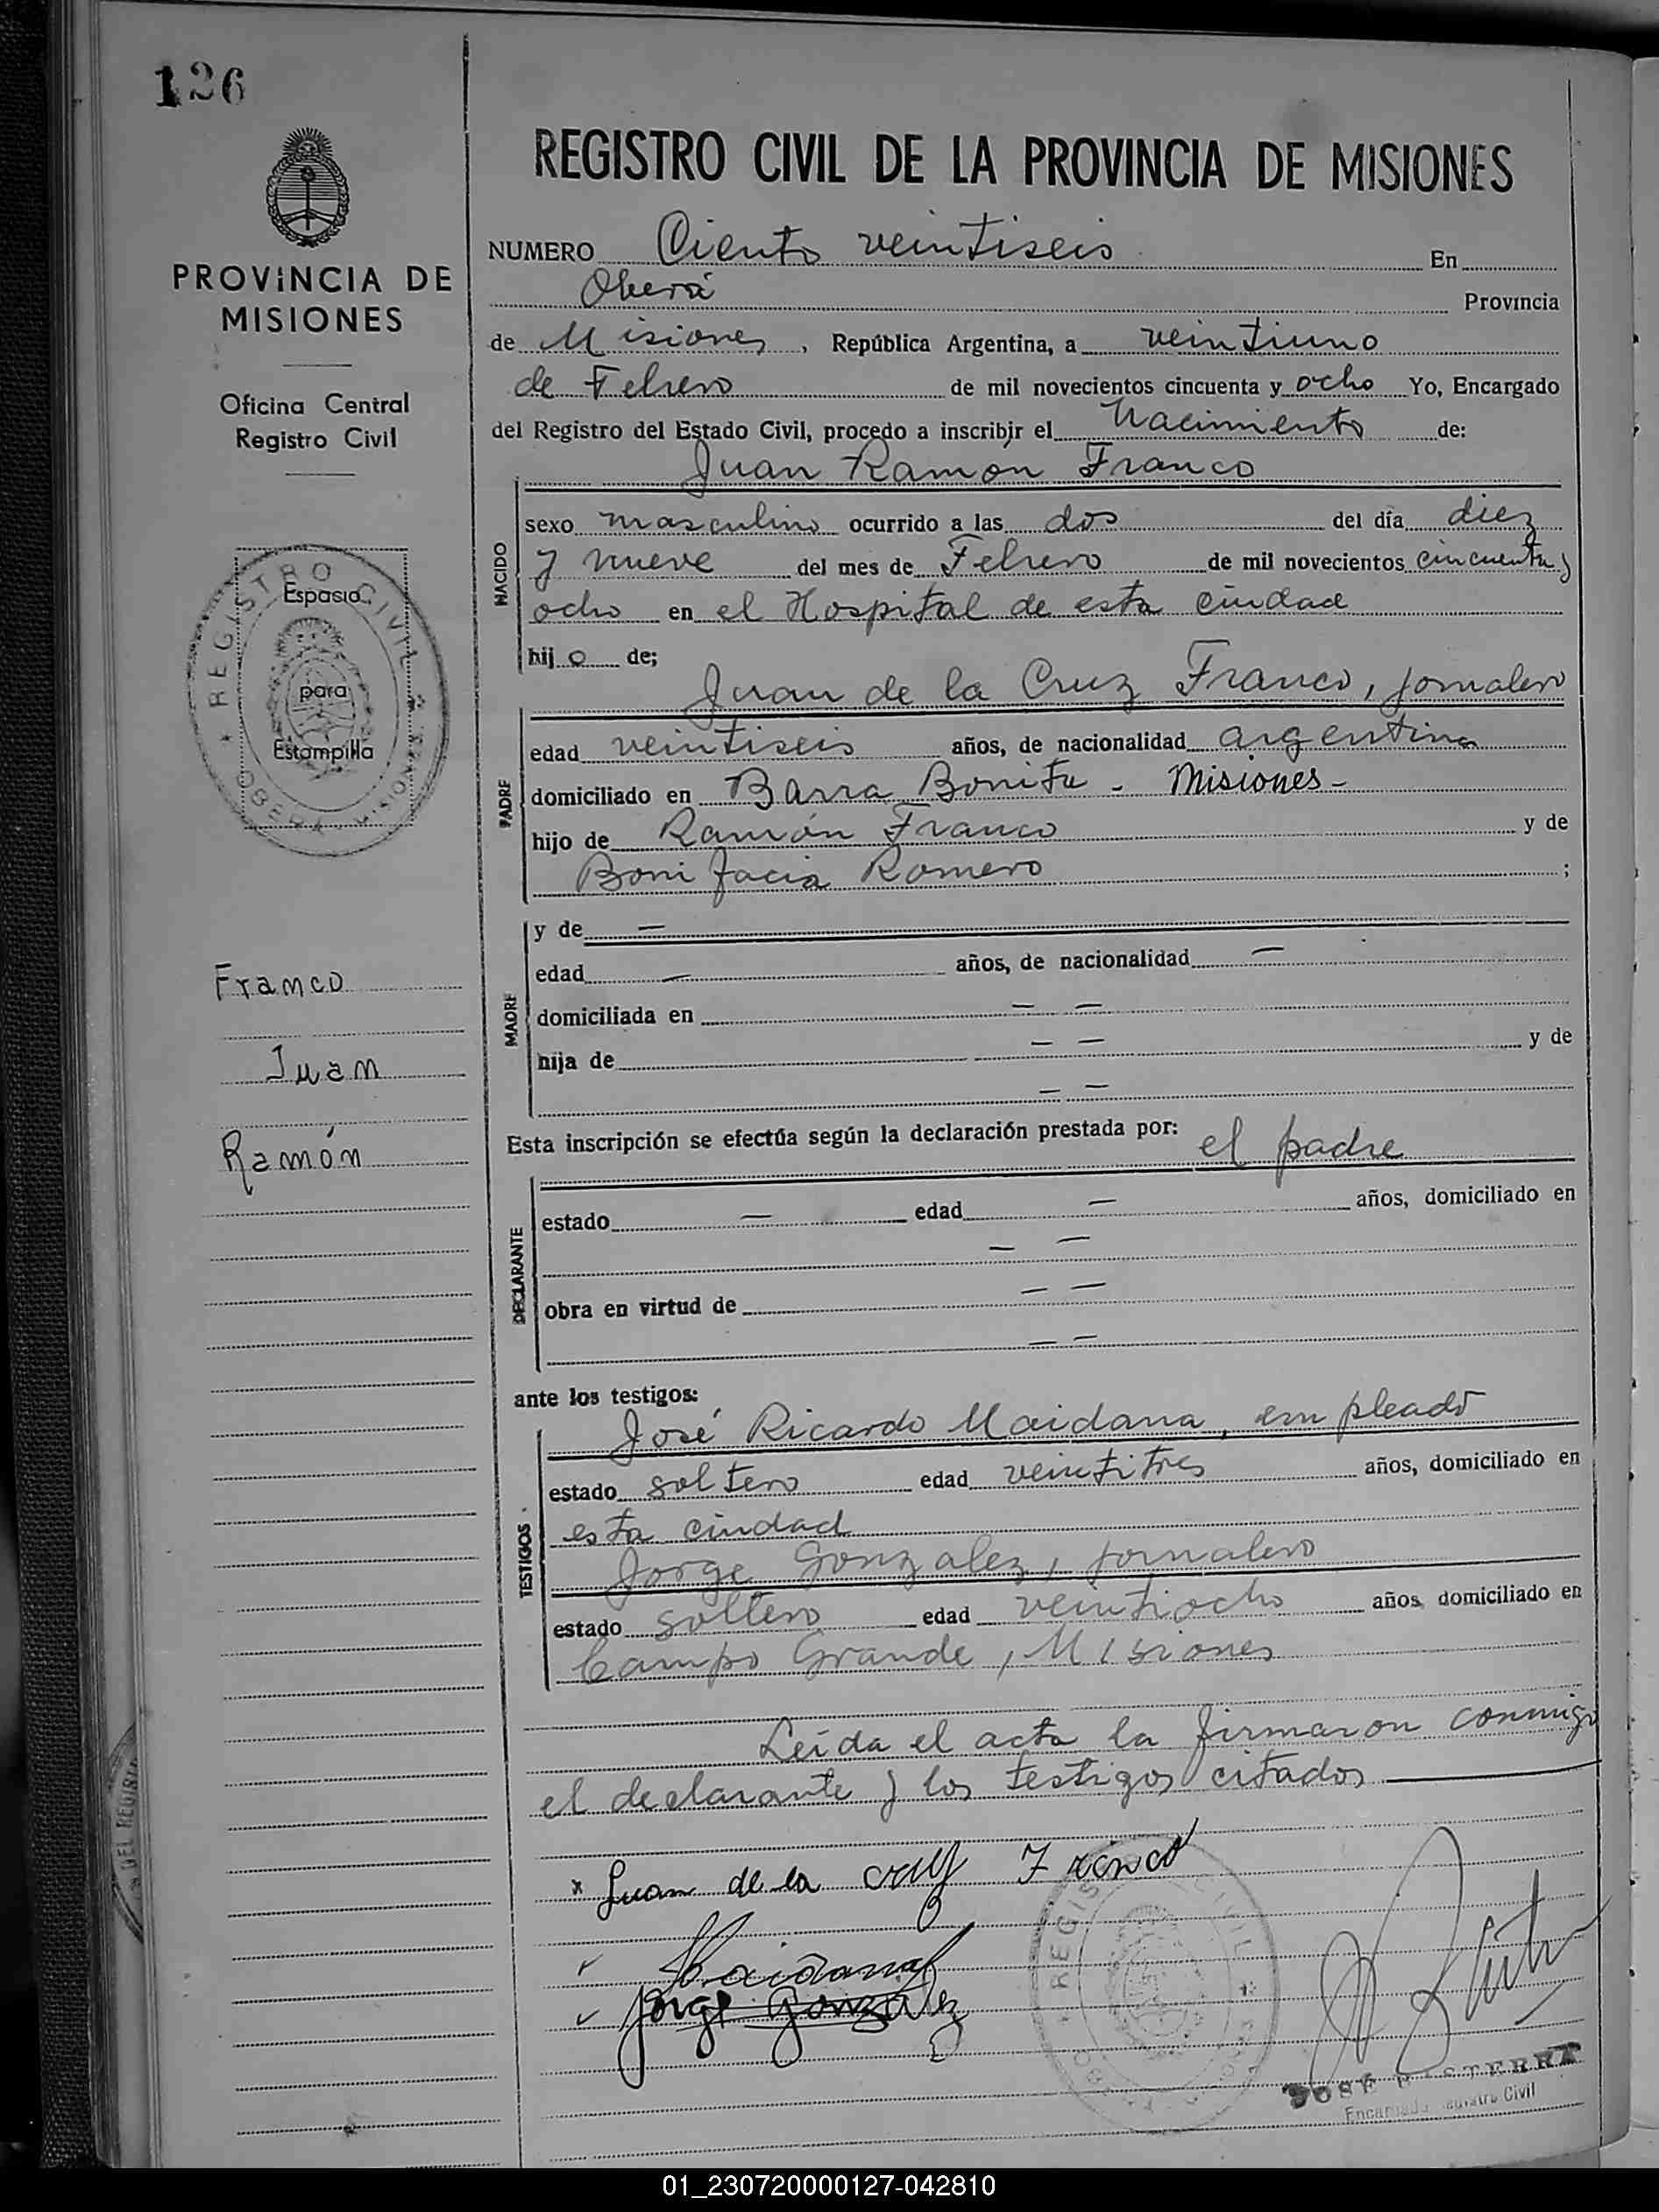 126
PROVINCIA DE
MISIONES
Oficina Central
Registro Civil
REGISTRO CIVIL
Espacio
para
Estampilla
OBERA MISIONES
Franco
Juan
Ramón
REGISTRO CIVIL DE LA PROVINCIA DE MISIONES
NUMERO Ciento veintiseis En
Oberá Provincia
de Misiones, República Argentina, a veintiuno
de Febrero de mil novecientos cincuenta y ocho Yo, Encargado
del Registro del Estado Civil, procedo a inscribir el Nacimiento de:
Juan Ramón Franco
NACIDO
sexo masculino ocurrido a las dos del día diez
y nueve del mes de Febrero de mil novecientos cincuenta y
ocho en el Hospital de esta ciudad
hijo de;
Juan de la Cruz Franco, jornalero
PADRE
edad veintiseis años, de nacionalidad argentina
domiciliado en Barra Bonita - Misiones -
hijo de Ramón Franco y de
Bonifacia Romero ;
MADRE
y de —
edad — años, de nacionalidad —
domiciliada en — —
hija de — — y de
— —
Esta inscripción se efectúa según la declaración prestada por: el padre
DECLARANTE
estado — edad — años, domiciliado en
— —
obra en virtud de — —
— —
ante los testigos:
José Ricardo Maidana, empleado
TESTIGOS
estado soltero edad veintitres años, domiciliado en
esta ciudad
Jorge Gonzalez, jornalero
estado soltero edad veintiocho años, domiciliado en
Campo Grande, Misiones
Leída el acta la firmaron conmigo
el declarante y los testigos citados
x Juan de la cruz Franco
Maidana
Jorge Gonzalez
REGISTRO CIVIL
JOSE
Encargado Registro Civil
DEL REGISTRO
01_230720000127-042810